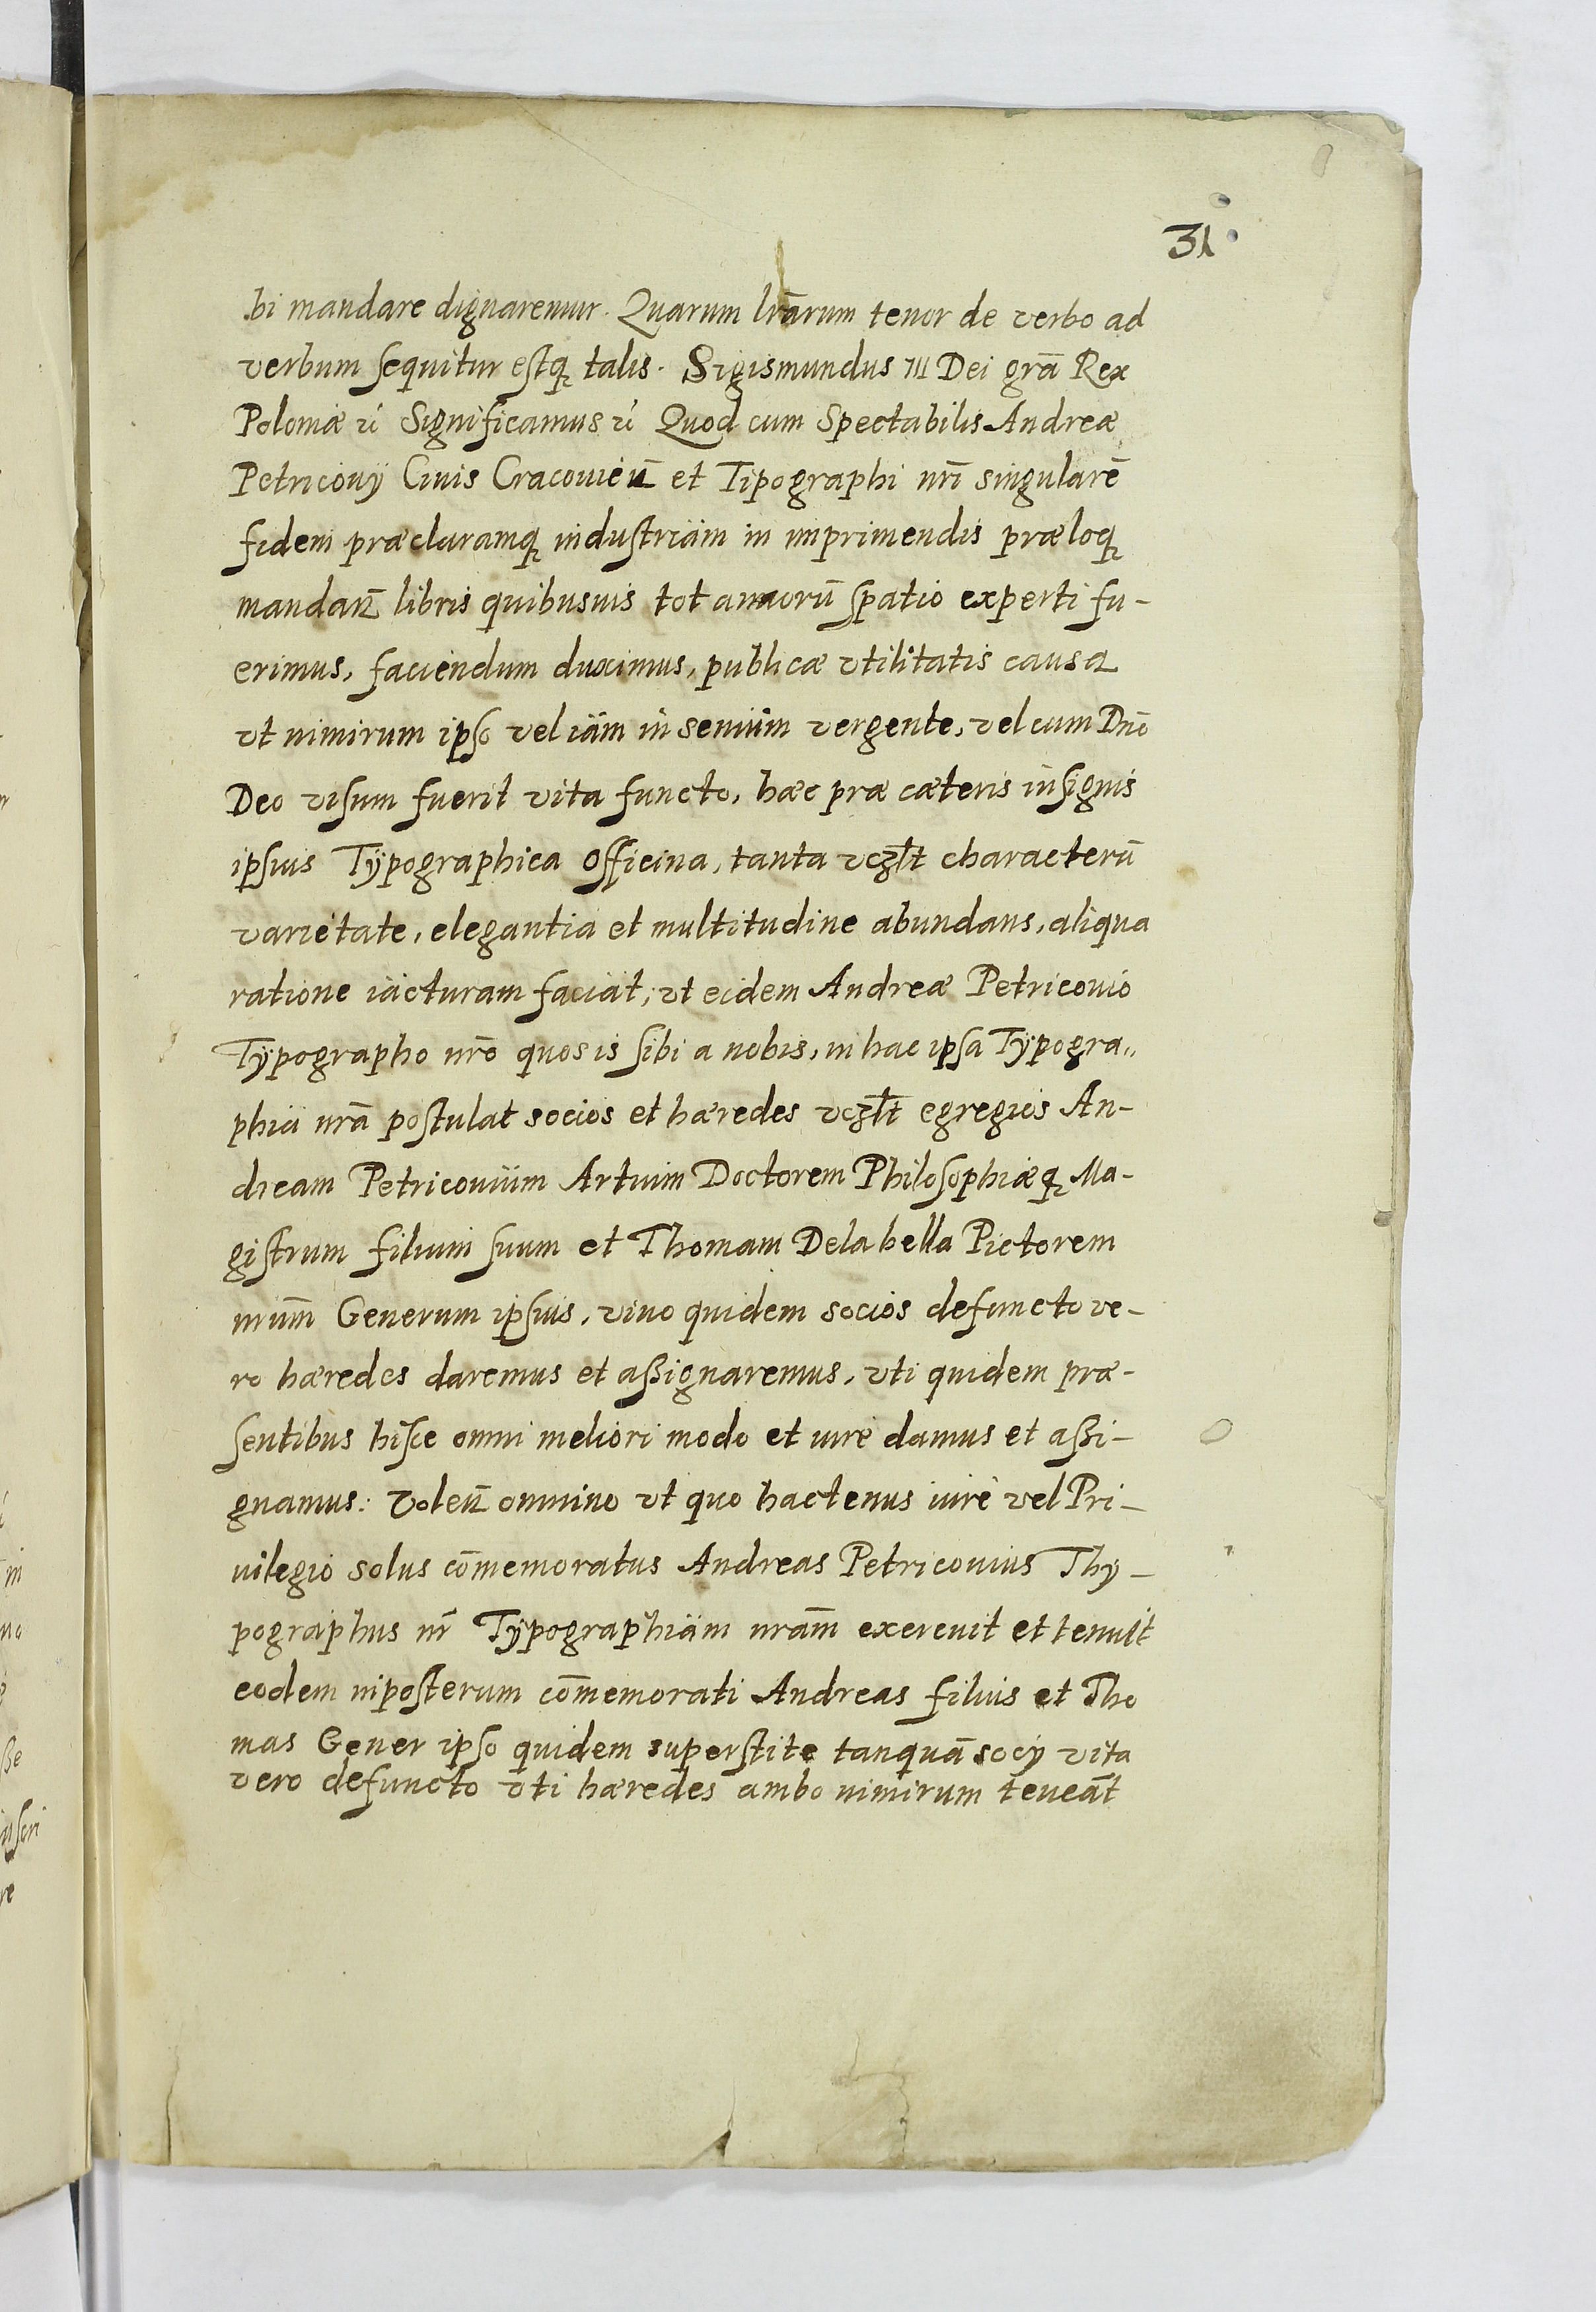 31
bi mandare dignaremur. Quarum lrãrum tenor de verbo ad
verbum sequitur estq̃ talis. Sigismundus III Dei grã Rex
Poloniæ &c̃ Significamus &c̃ Quod cum Spectabilis Andreæ
Petricovij Civis Cracovieñ et Tipographi nrĩ singularẽ
fidem præclaramq̃ industriam in imprimendis præloq̃
mandañ libris quibusuis tot annorũ spatio experti fu-
erimus, faciendum duximus, publicæ vtilitatis causa
vt nimirum ipso vel iam in senium vergente, vel cum Dnõ
Deo visum fuerit vita functo, hæc præ cæteris insignis
ipsius Typographica Officina, tanta vczlt characterũ
varietate, elegantia et multitudine abundans, aliqua
ratione iacturam faciat, vt eidem Andreæ Petricouio
Typographo nrõ quos is sibi a nobis, in hac ipsa Typogra„
phia nrã postulat socios et hæredes vczlt egregios An-
dream Petricouium Artium Doctorem Philosophiæq̃ Ma-
gistrum filium suum et Thomam Dela bella Pictorem
nrum̃ Generum ipsius, viuo quidem socios defuncto ve-
ro hæredes daremus et assignaremus, vti quidem præ-
sentibus hisce omni meliori modo et iure damus et assi-
gnamus: Voleñ omnino vt quo hactenus iure vel Pri-
uilegio solus cõmemoratus Andreas Petricouius Thy-
pographus nr̃ Typographiam nram̃ exercuit et tenuit
eodem inposterum cõmemorati Andreas filius et Tho
mas Gener ipso quidem superstite tanquã socij vita
vero defuncto vti hæredes ambo nimirum teneãt